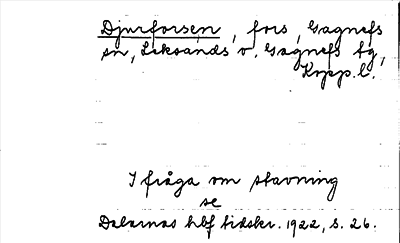 Djurforsen, fors, Gagnefs
sn, Leksands o. Gagnefs tg,
Kopp. l.
I fråga om stavning
se
Dalarnas hbf tidskr. 1922, s. 26.